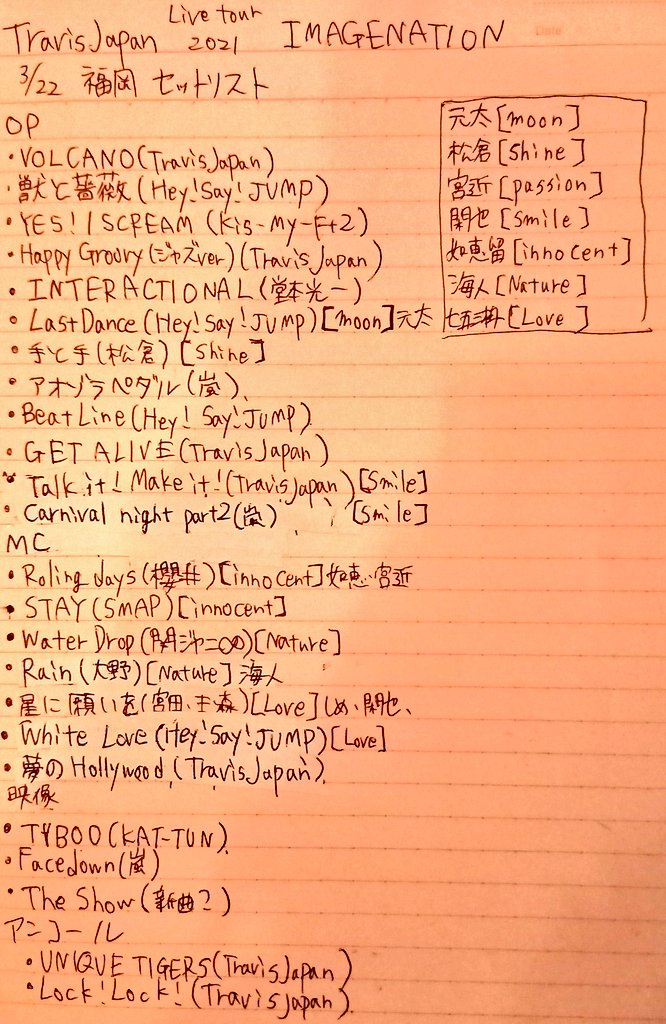 Travis Japan Live tour 2021 IMAGENATION
3/22 福岡 セットリスト
OP
・VOLCANO(TravisJapan)
・獣と薔薇(Hey!Say!JUMP)
・YES! I SCREAM (Kis-My-Ft2)
・Happy Groovy(ジャズver)(TravisJapan)
・INTERACTIONAL(堂本光一)
・LastDance(Hey!Say!JUMP)[moon]元太
・手と手(松倉)[Shine]
・アオゾラペダル(嵐)
・Beat Line(Hey! Say! JUMP)
・GET ALIVE(TravisJapan)
・Talk it! Make it!(TravisJapan)[Smile]
・Carnival night part2(嵐) [Smile]
MC
・Roling days(櫻井)[innocent]如恵、宮近
・STAY(SMAP)[innocent]
・Water Drop(関ジャニ∞)[Nature]
・Rain(大野)[Nature]海人
・星に願いを(宮田、玉森)[Love]しめ、閑也、
・White Love(Hey!Say!JUMP)[Love]
・夢のHollywood(TravisJapan)
映像
・TYBOO(KAT-TUN)
・Facedown(嵐)
・The Show(新曲?)
アンコール
・UNIQUE TIGERS(TravisJapan)
・Lock!Lock!(TravisJapan)
元太[moon]
松倉[Shine]
宮近[passion]
閑也[Smile]
如恵留[innocent]
海人[Nature]
七五三掛[Love]